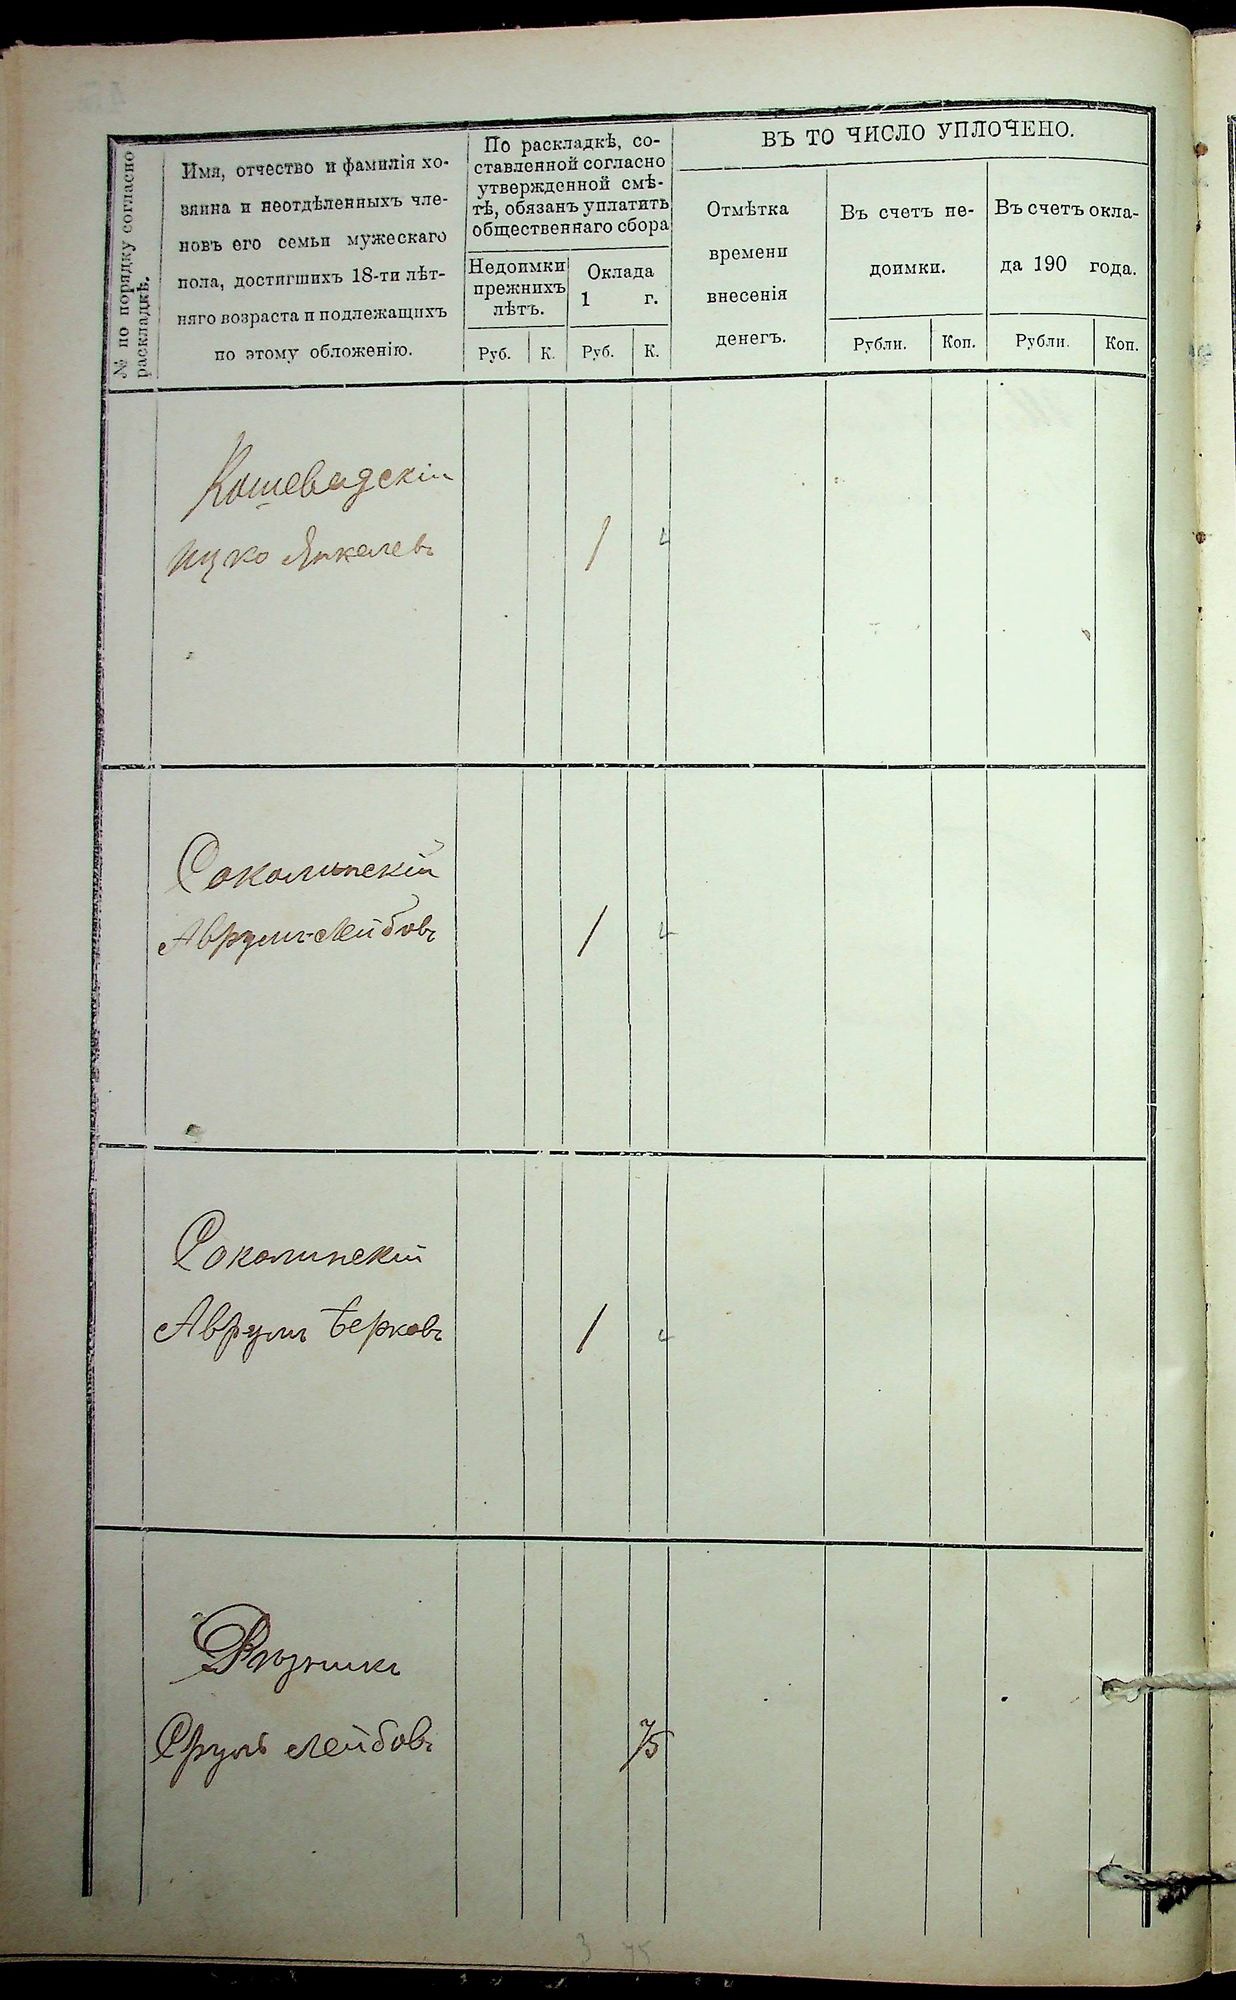 № по порядку согласно
раскладкѣ.
Имя, отчество и фамилія хо-
зяина и неотдѣленныхъ чле-
новъ его семьи мужескаго
пола, достигшихъ 18-ти лѣт-
няго возраста и подлежащихъ
по этому обложенію.
По раскладкѣ, со-
ставленной согласно
утвержденной смѣ-
тѣ, обязанъ уплатить
общественнаго сбора
Недоимки
прежнихъ
лѣтъ.
Оклада
1 г.
Руб. К. Руб. К.
ВЪ ТО ЧИСЛО УПЛОЧЕНО.
Отмѣтка
времени
внесенія
денегъ.
Въ счетъ не-
доимки.
Въ счетъ окла-
да 190 года.
Рубли. Коп. Рубли. Коп.
Кошевадскій
Ицко Янкелевъ 1
Соколинскій
Аврумъ-Лейбовъ 1
Соколинскій
Аврумъ Берковъ 1
Сруль Лейбовъ 75
3 75